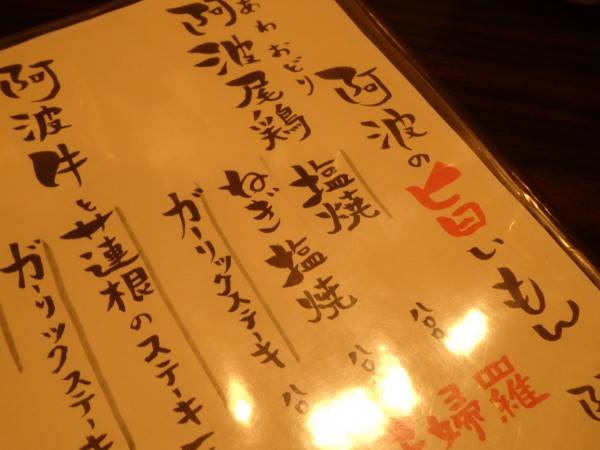 阿波の旨いもん
あわおどり
阿波尾鶏
塩焼 八〇〇
ねぎ塩焼 八〇〇
ガーリックステーキ 八〇〇
阿波牛
と
蓮根のステーキ
ガーリックステーキ